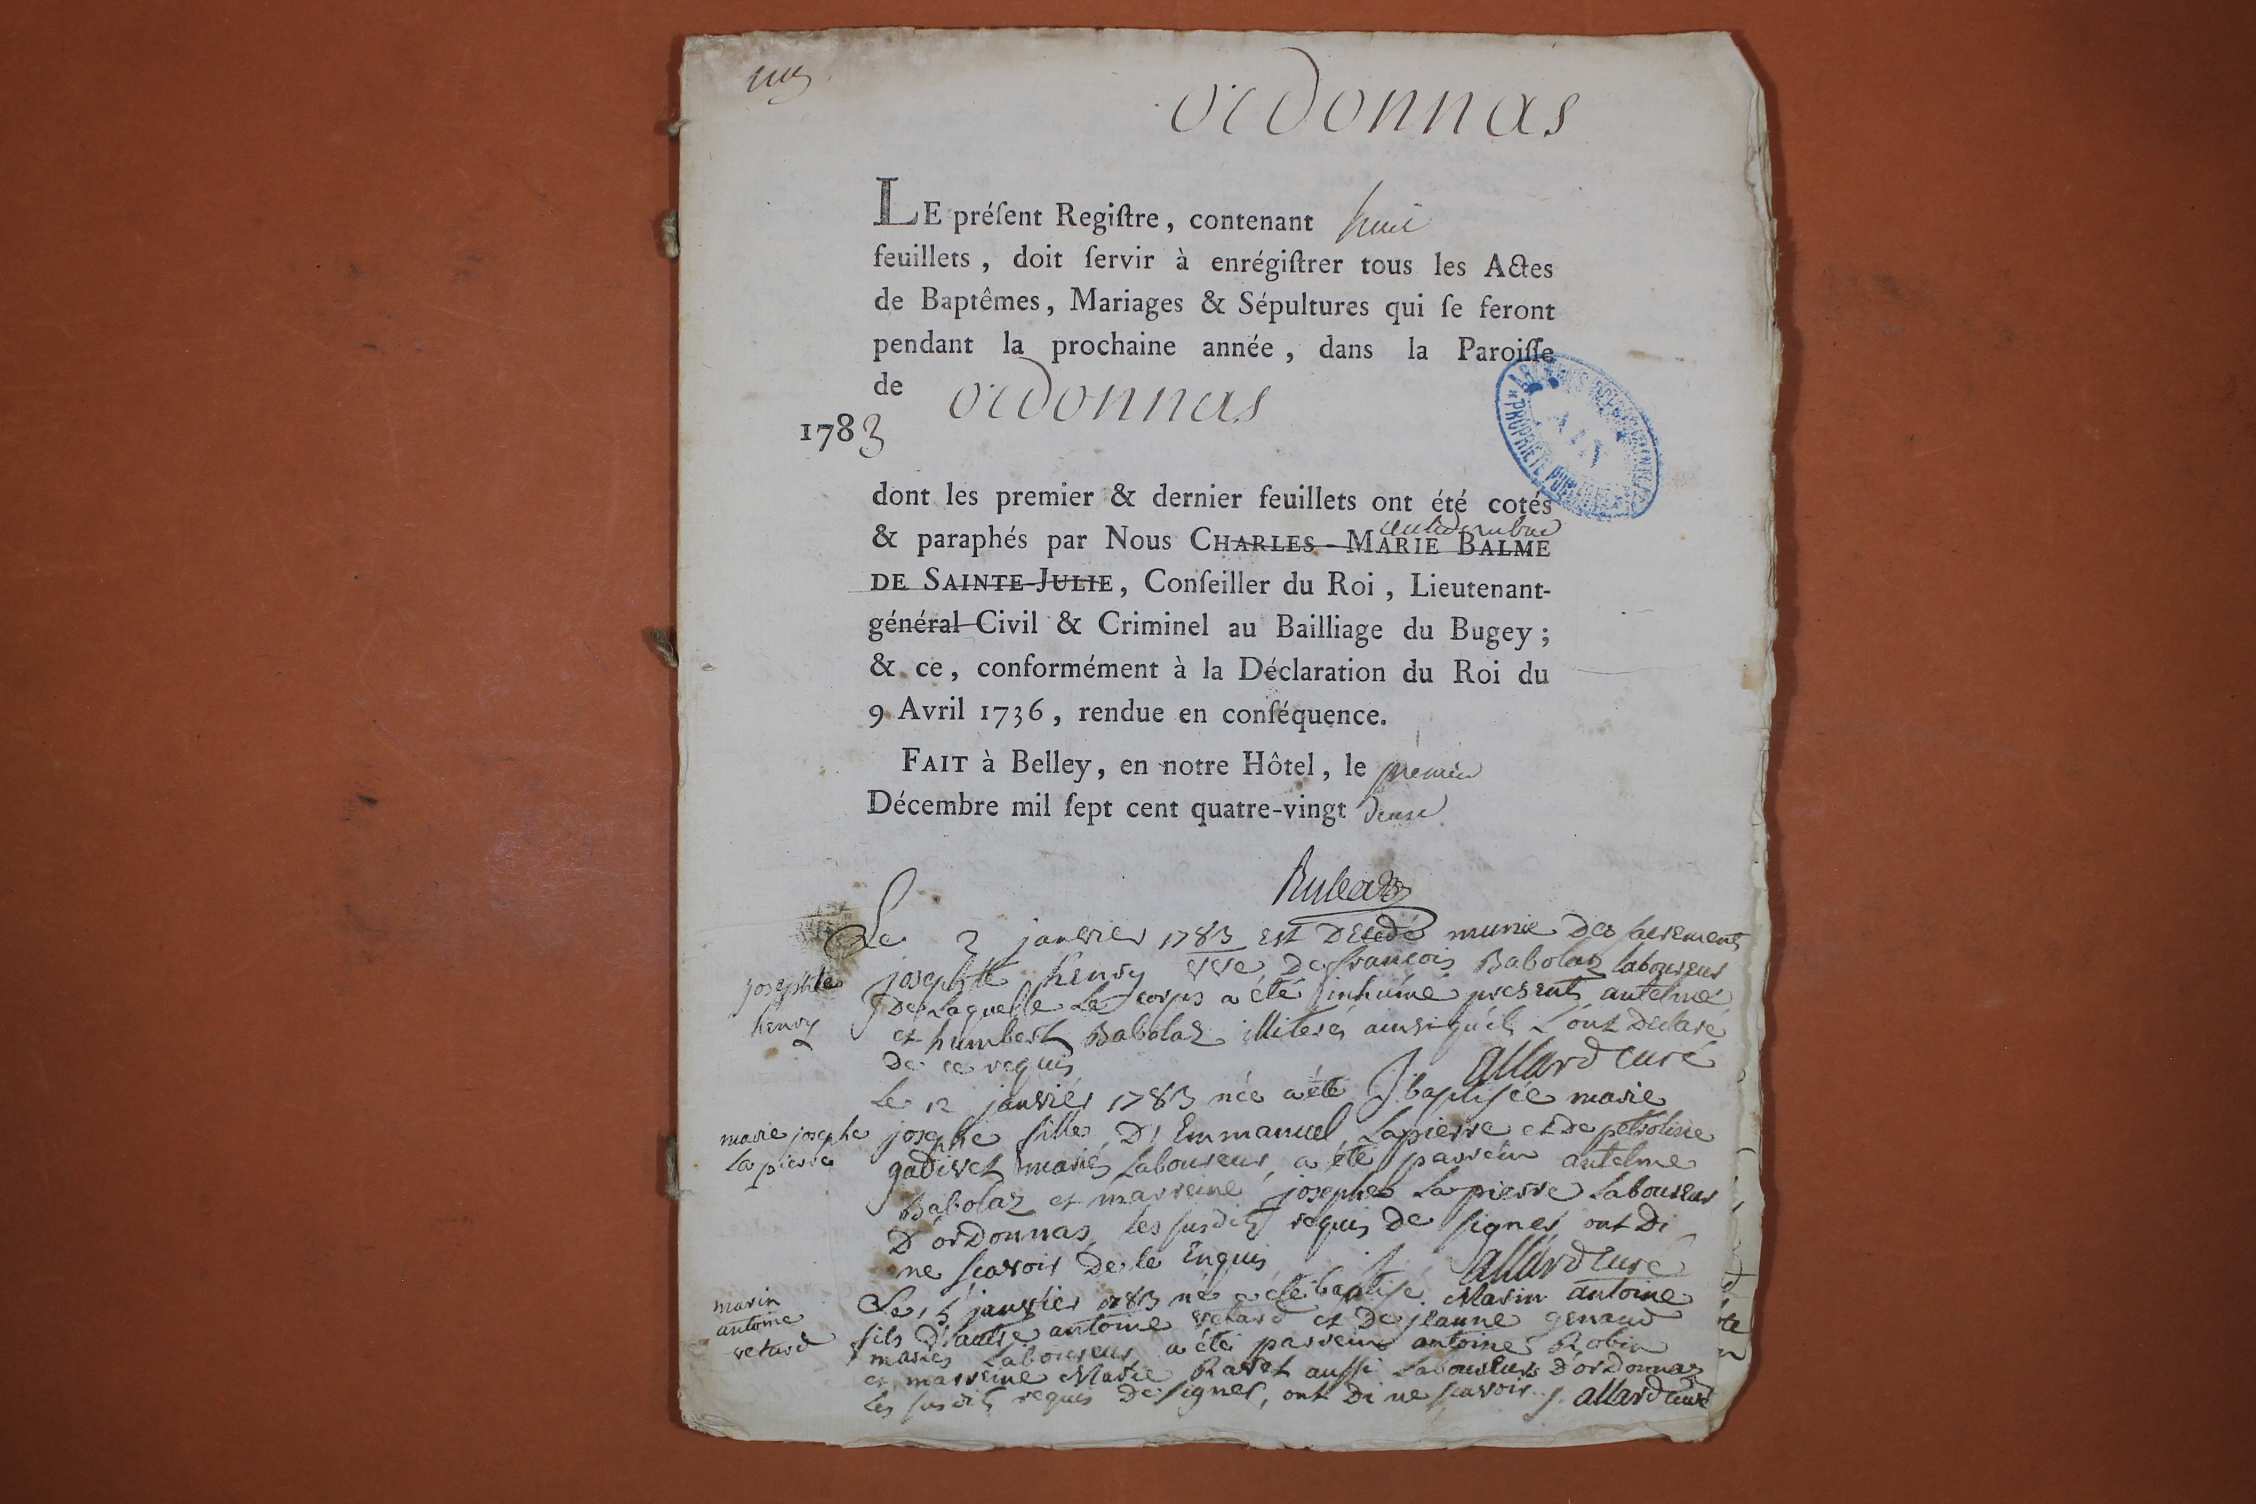 ordonnas
LE préſent Regiſtre, contenant huit
feuillets, doit ſervir à enrégiſtrer tous les Actes
de Baptêmes, Mariages & Sépultures qui ſe feront
pendant la prochaine année, dans la Paroiſſe
de ordonnas
1783
ARCHIVES DÉPARTEMENTALES
AIN
* PROPRIÉTÉ PUBLIQUE *
dont les premier & dernier feuillets ont été cotés
& paraphés par Nous CHARLES-MARIE BALME
DE SAINTE-JULIE, Conſeiller du Roi, Lieutenant-
général Civil & Criminel au Bailliage du Bugey;
& ce, conformément à la Déclaration du Roi du
9 Avril 1736, rendue en conſéquence.
FAIT à Belley, en notre Hôtel, le premier
Décembre mil ſept cent quatre-vingt deux
Le 3 janvier 1783 est Decedé munie Des sacrements
josephte henry
josephte henry vve De françois Babolaz laboureur
De laquelle Le corps a été inhumé presents antelme
et humbert Babolaz illiterés ainsi qu'ils L'ont Declaré
De ce requis allard curé
Le 12 janvier 1783 née a été baptisée marie
marie josephe
La pierre
josephe fille D'Emmanuel Lapierre et De petroline
gadivet mariés Laboureur, a été parrein antelme
Babolaz et marreine josephe Lapierre Laboureur
D'ordonnas, Les susdits requis De signer ont Di
ne scavoir De le Enquis allard curé
marin
antoine
vetard
Le 15 janvier 1783 né a été baptisé Marin antoine
fils D'autre antoine vetard et De jeanne genaud
mariés Laboureur a été parrein antoine Robin
et marreine Marie Ravet aussi Laboureurs D'ordonnas
Les susdits requis De signer, ont Di ne scavoir. allard curé